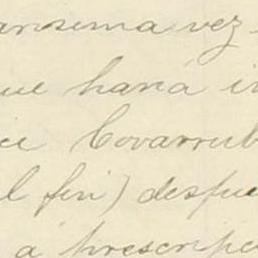 arisima vez
que hará i
ice Covarrub
l fin) despue
a prescripc